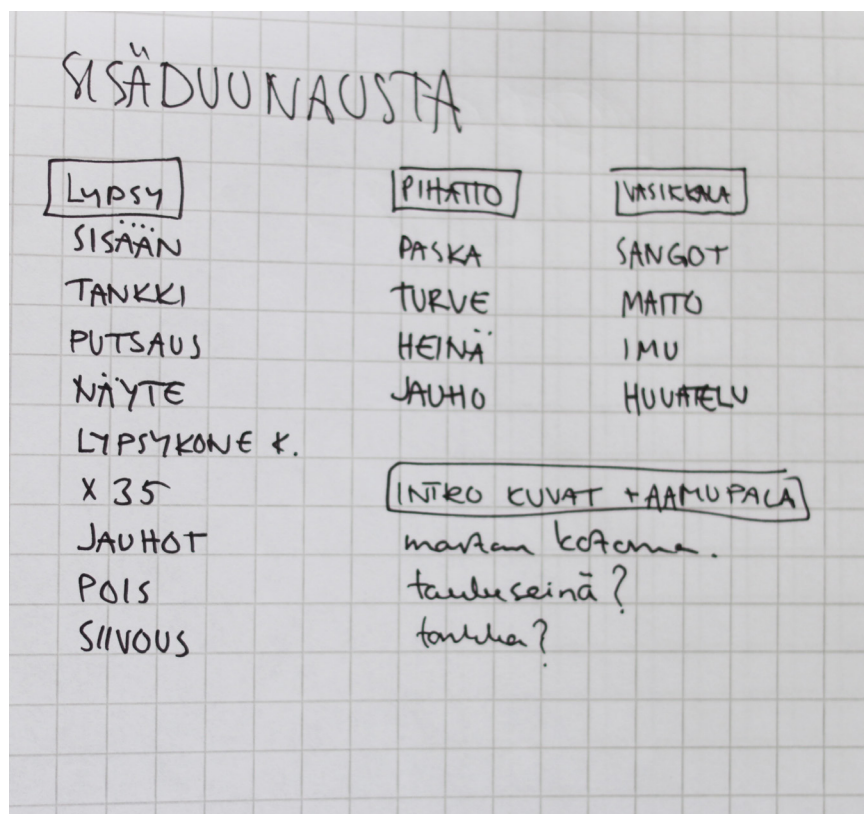 SISÄDUUNAUSTA
LYPSY
SISÄÄN
TANKKI
PUTSAUS
NÄYTE
LYPSYKONE K.
X 35
JAUHOT
POIS
SIIVOUS
PIHATTO
PASKA
TURVE
HEINÄ
JAUHO
VASIKKALA
SANGOT
MAITO
IMU
INTRO KUVAT + AAMUPALA
tauluseinä?